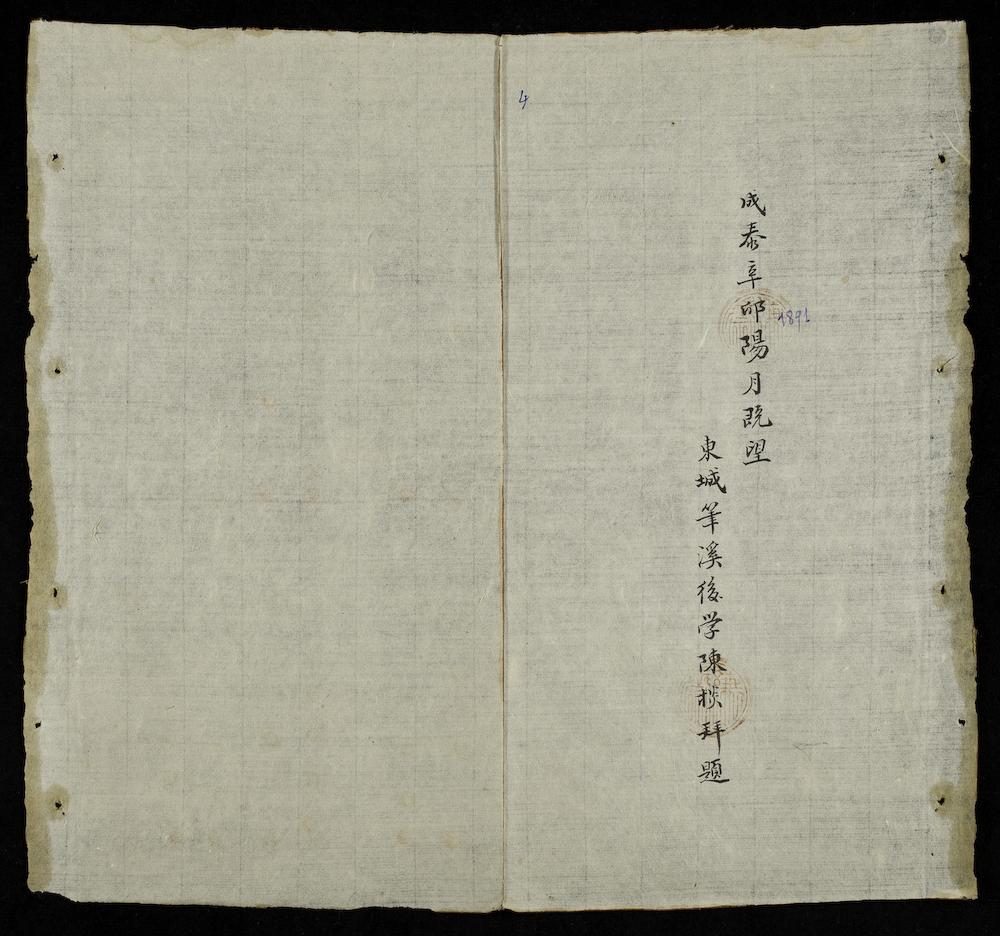 4
成泰辛邜陽月既望
1891
東城筆溪後学陳棪拜題